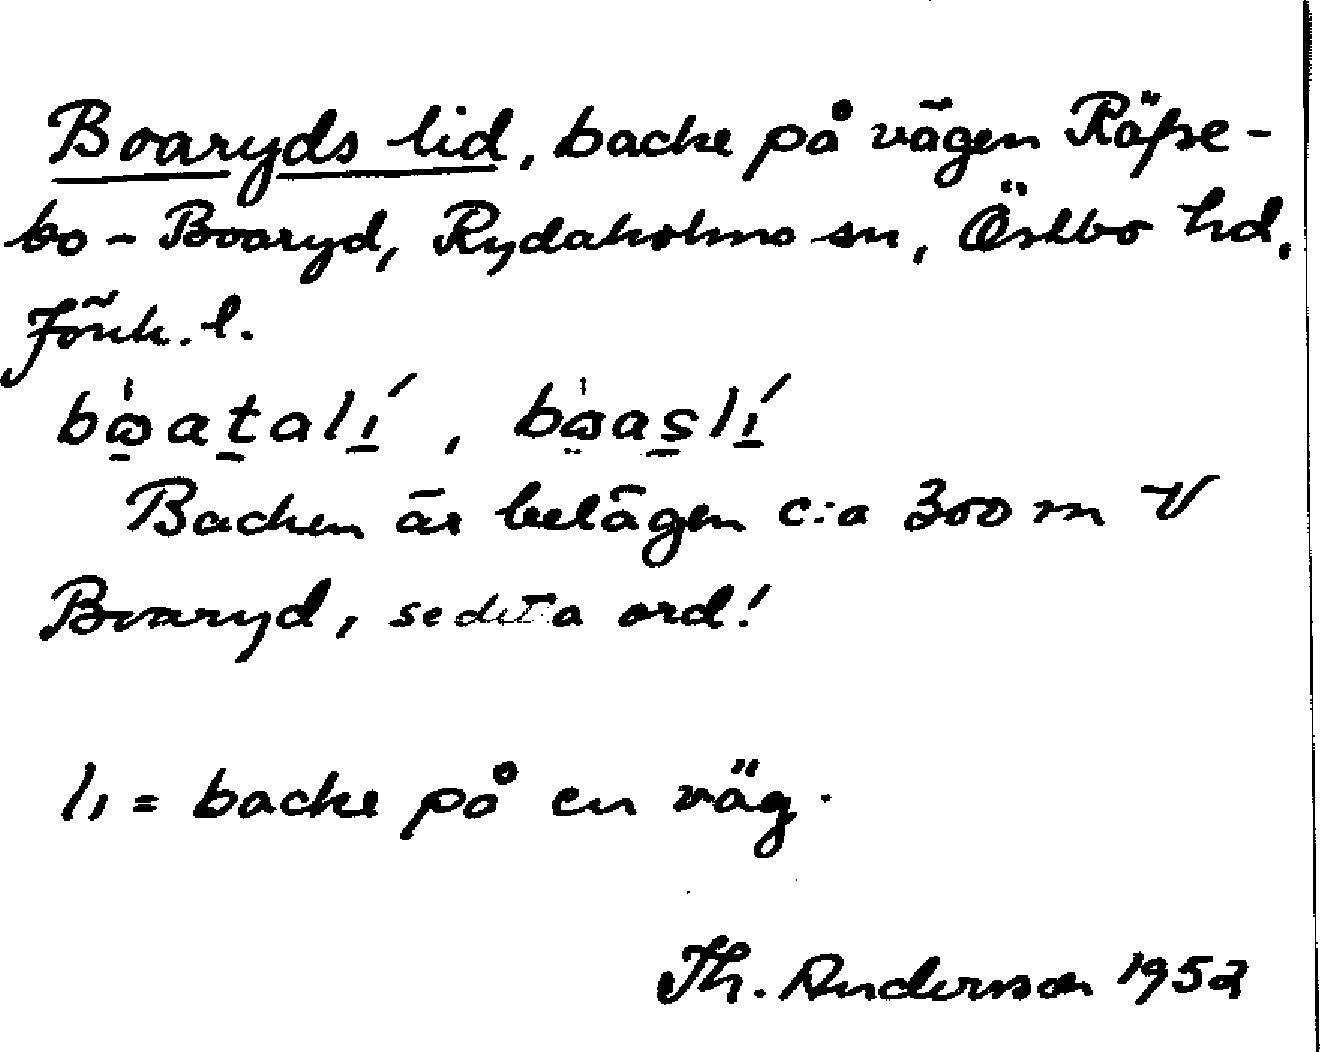 Boaryds lid, backe på vägen Räfse-
bo - Boaryd, Rydaholms sn, Östbo hd,
Jönk. l.
Backen är belägen c:a 300 m V
Boaryd, se detta ord!
lı = backe på en väg.
Th. Andersson 1952